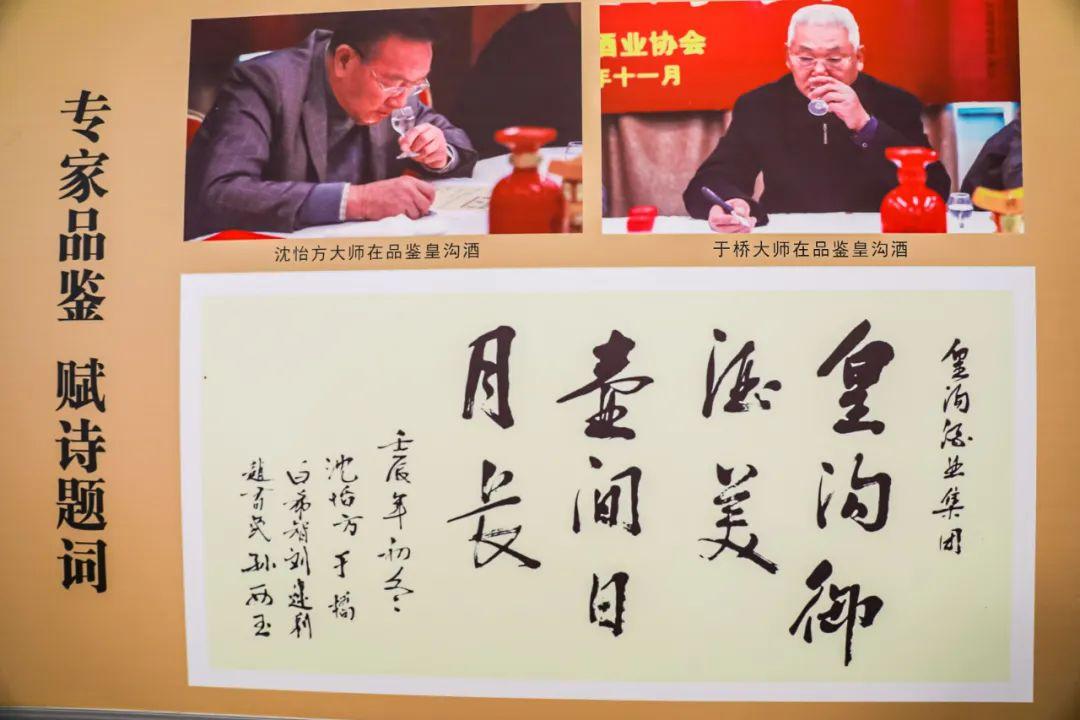 专家品鉴 赋诗题词
酒业协会
年十一月
沈怡方大师在品鉴皇沟酒
于桥大师在品鉴皇沟酒
皇沟酒业集团
皇沟御
酒美
壶间日
月长
壬辰年初冬
沈怡方 于桥
白希智 刘建利
趙书民 孙西玉